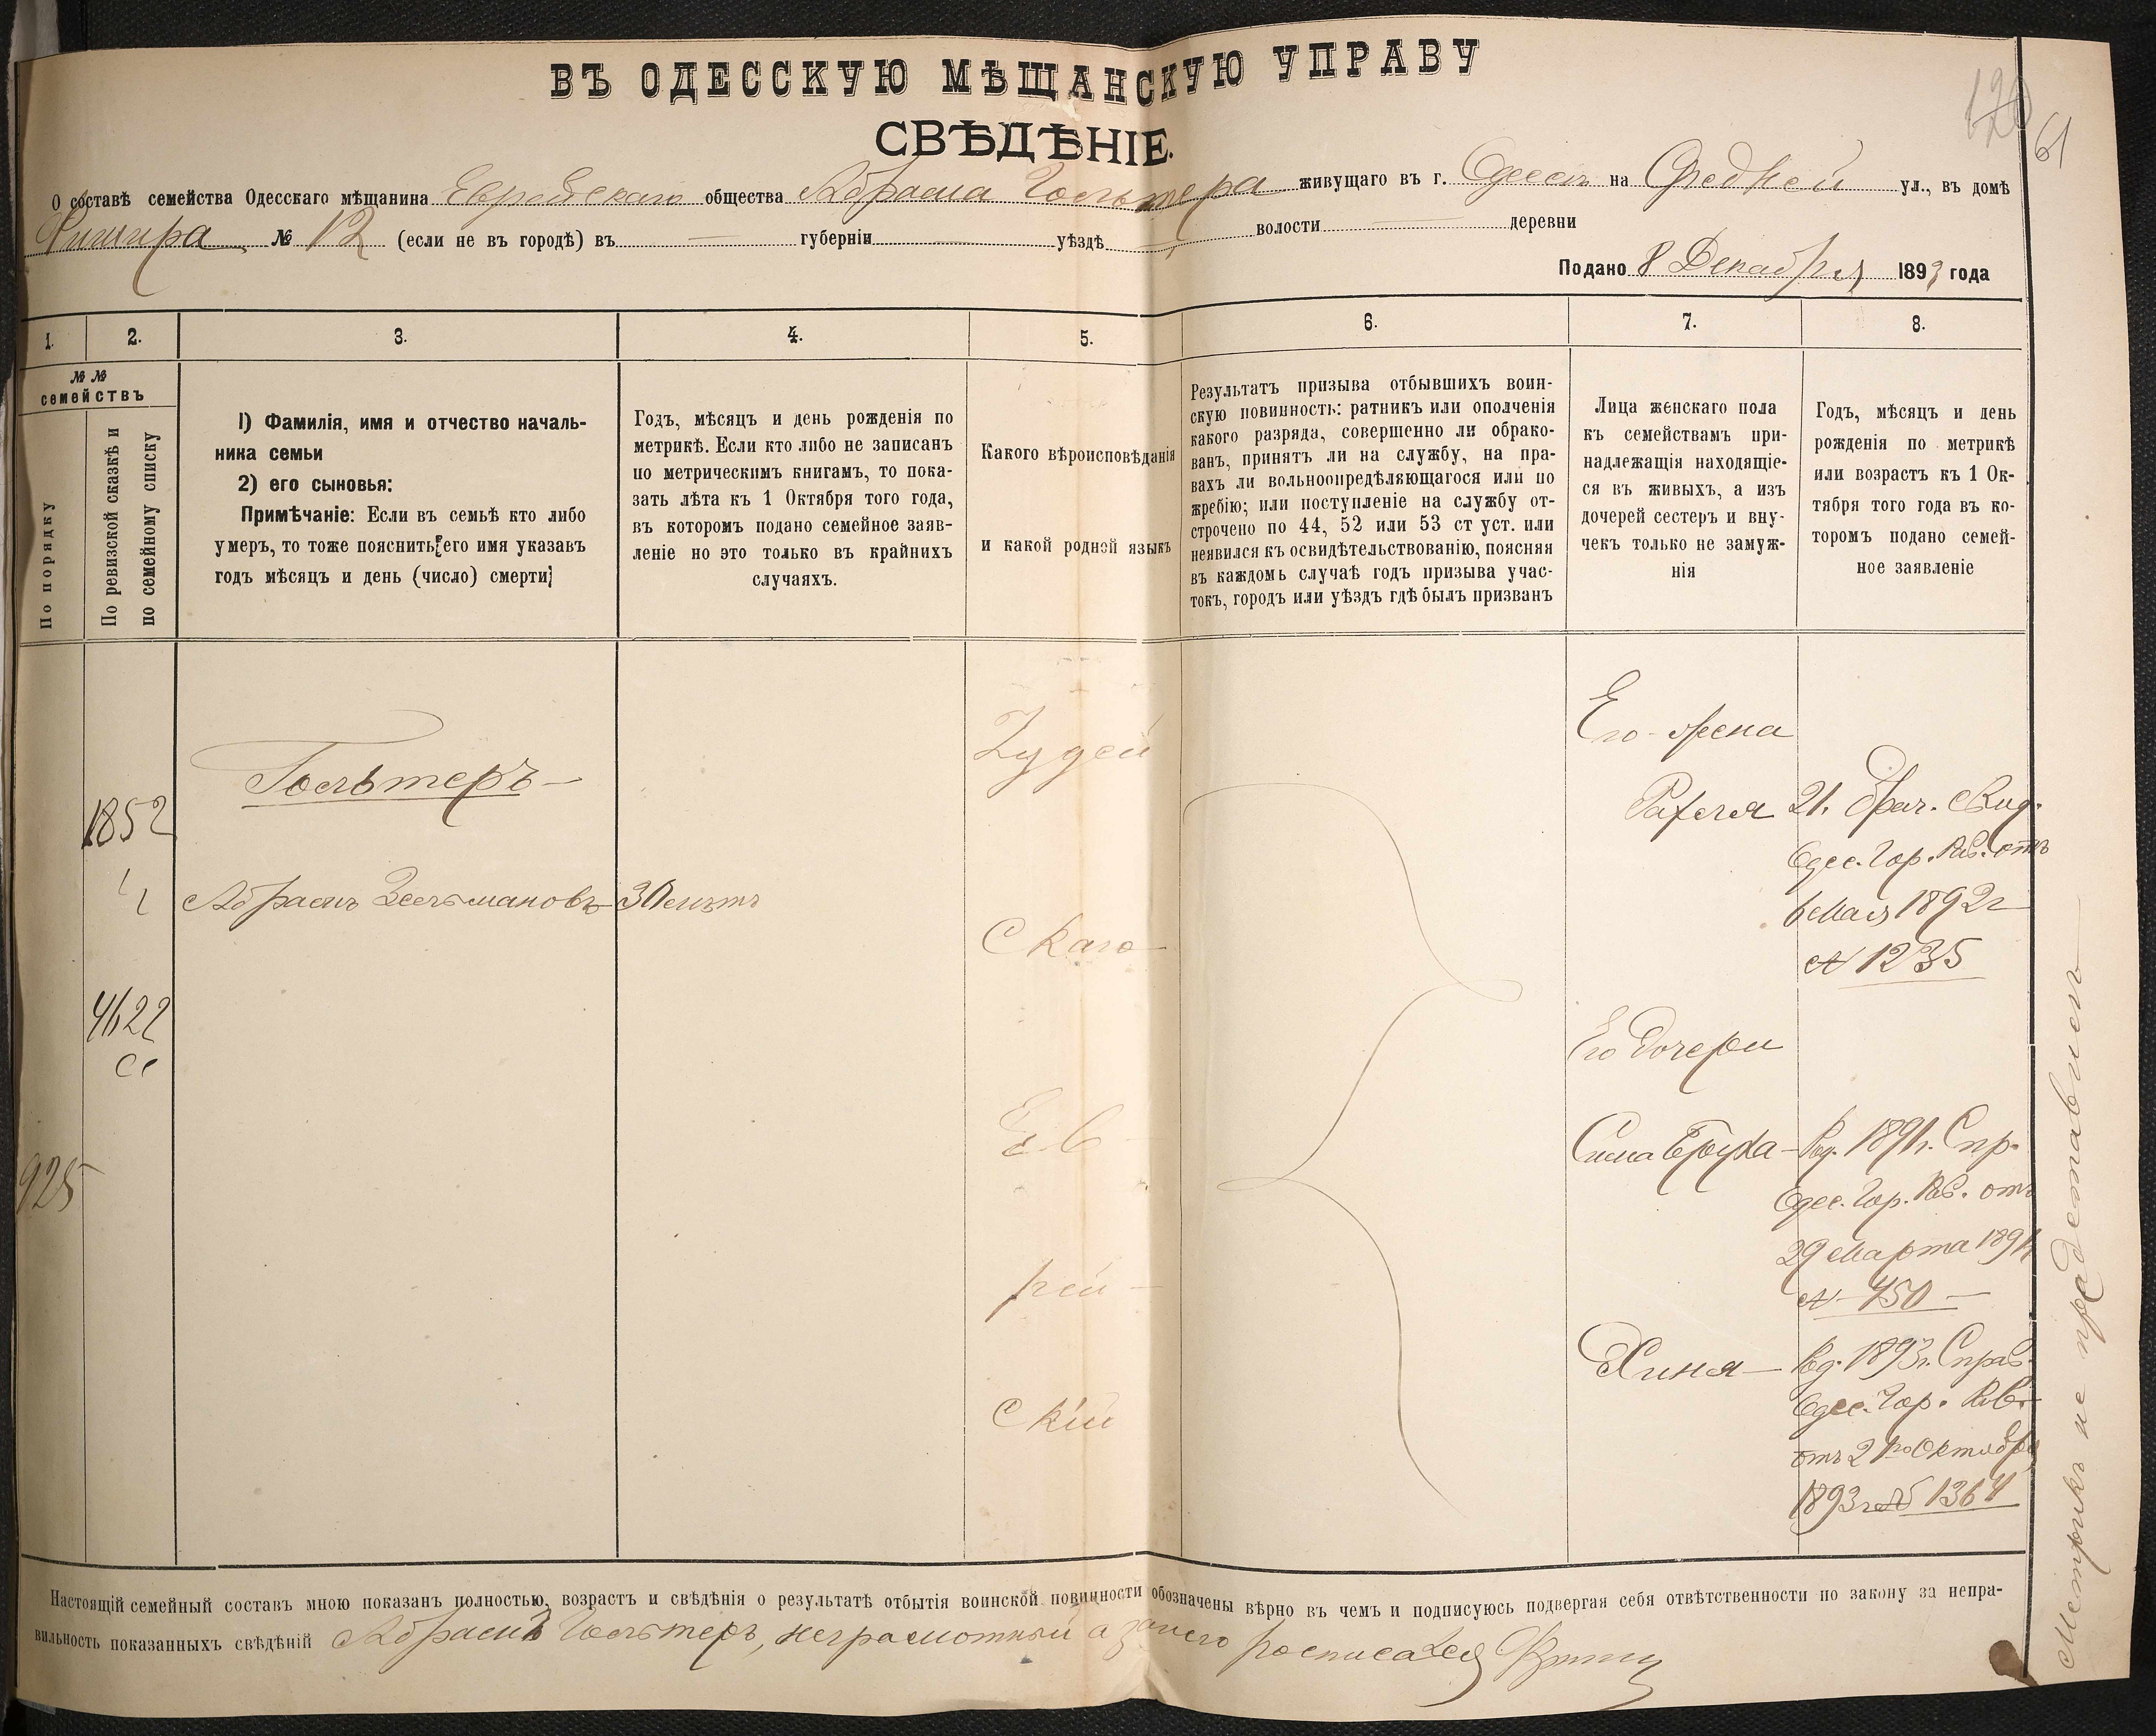 ВЪ ОДЕССКУЮ МѢЩАНСКУЮ УПРАВУ
120
61
СВѢДѢНІЕ.
О составѣ семейства Одесскаго мѣщанина Еврейскаго общества Абрама Гольтера живущаго въ г. Одессѣ на Средней ул., въ домѣ
№ 12 (если не въ городѣ) въ губерніи уѣздѣ волости деревни
Подано 8 Декабря 1893 года
1. 2. 3. 4. 5. 6. 7. 8.
№ №
семействъ
По порядку
По ревизской сказкѣ и
по семейному списку
1) Фамилія, имя и отчество началь-
ника семьи
2) его сыновья:
Примѣчаніе: Если въ семьѣ кто либо
умеръ, то тоже пояснить его имя указавъ
годъ мѣсяцъ и день (число) смерти;
Годъ, мѣсяцъ и день рожденія по
метрикѣ. Если кто либо не записанъ
по метрическимъ книгамъ, то пока-
зать лѣта къ 1 Октября того года,
въ которомъ подано семейное заяв-
леніе но это только въ крайнихъ
случаяхъ.
Какого вѣроисповѣданія
и какой родной языкъ
Результатъ призыва отбывшихъ воин-
скую повинность: ратникъ или ополченія
какого разряда, совершенно ли обрако-
ванъ, принятъ ли на службу, на пра-
вахъ ли вольноопредѣляющагося или по
жребію; или поступленіе на службу от-
строчено по 44, 52 или 53 ст уст. или
неявился къ освидѣтельствованію, поясняя
въ каждомъ случаѣ годъ призыва учас-
токъ, городъ или уѣздъ гдѣ былъ призванъ
Лица женскаго пола
къ семействамъ при-
надлежащія находящіе-
ся въ живыхъ, а изъ
дочерей сестеръ и вну-
чекъ только не замуж-
нія
Годъ, мѣсяцъ и день
рожденія по метрикѣ
или возрастъ къ 1 Ок-
тября того года въ ко-
торомъ подано семей-
ное заявленіе
925
1852
4622
сс
Гольтеръ
Абрамъ Зельмановъ
30 лѣтъ
Іудей
скаго
Ев
рей-
скій
Его жена
Рахеля
21. брач. свид.
Одес. Гор. Рав. отъ
6 Мая 1892 г
№ 1235
Его дочери
Сима Бруха
Род. 1891 г. Спр.
Одес. Гор. Рав. отъ
29 Марта 1891
№ 450
Хиня
Род. 1893 г. Справ.
Одес. Гор. Рав.
отъ 21го Октября
1893 г № 1364
Метрикъ не представилъ
Настоящій семейный составъ мною показанъ полностью, возрастъ и свѣдѣнія о результатѣ отбытія воинской повинности обозначены вѣрно въ чемъ и подписуюсь подвергая себя отвѣтственности по закону за непра-
вильность показанныхъ свѣдѣній Абрамъ Гольтеръ, неграмотный а занего росписался